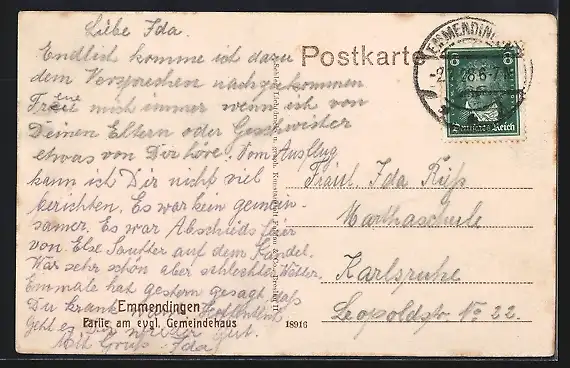 Liebe Ida.
Endlich komme ich dazu
dem Versprechen nachgekommen
Freue mich immer wenn ich von
Deinen Eltern oder Geschwister
etwas von Dir höre. Vom Ausflug
kann ich Dir nicht viel
berichten. Es war kein gemein-
samer. Es war Abschieds feier
von Else Sautter auf dem Kandel.
War sehr schön aber schlechtes Wetter.
Emmale hat gestern gesagt daß
Du krank Hoffentlich
geht es Dir wieder gut.
Mit Gruß Ida
Postkarte
EMMENDINGEN
8 8
Deutsches Reich
Fräul. Ida
Marthaschule
Karlsruhe
Leopoldstr. No 22.
Emmendingen
Partie am evgl. Gemeindehaus 18916